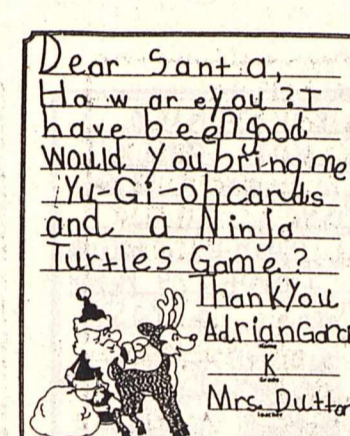 Dear Santa,
How are you? I
have been good
Would you bring me
Yu-Gi-oh cards
and a Ninja
Turtles Game?
Thank You
Adrian
K
Grade
Mrs.
teacher